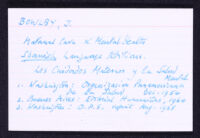 BOWLBY, J.
Maternal Care & Mental Health
Spanish Language Editions.
Los Cuidados Maternos y la Salud Mental
1. Washington: Organizacion Panamericana de la Salud. 1954
2. Buenos Aires: Editorial Humanitas, 1964
3. Washington: O.P.S. reprint Aug. 1968